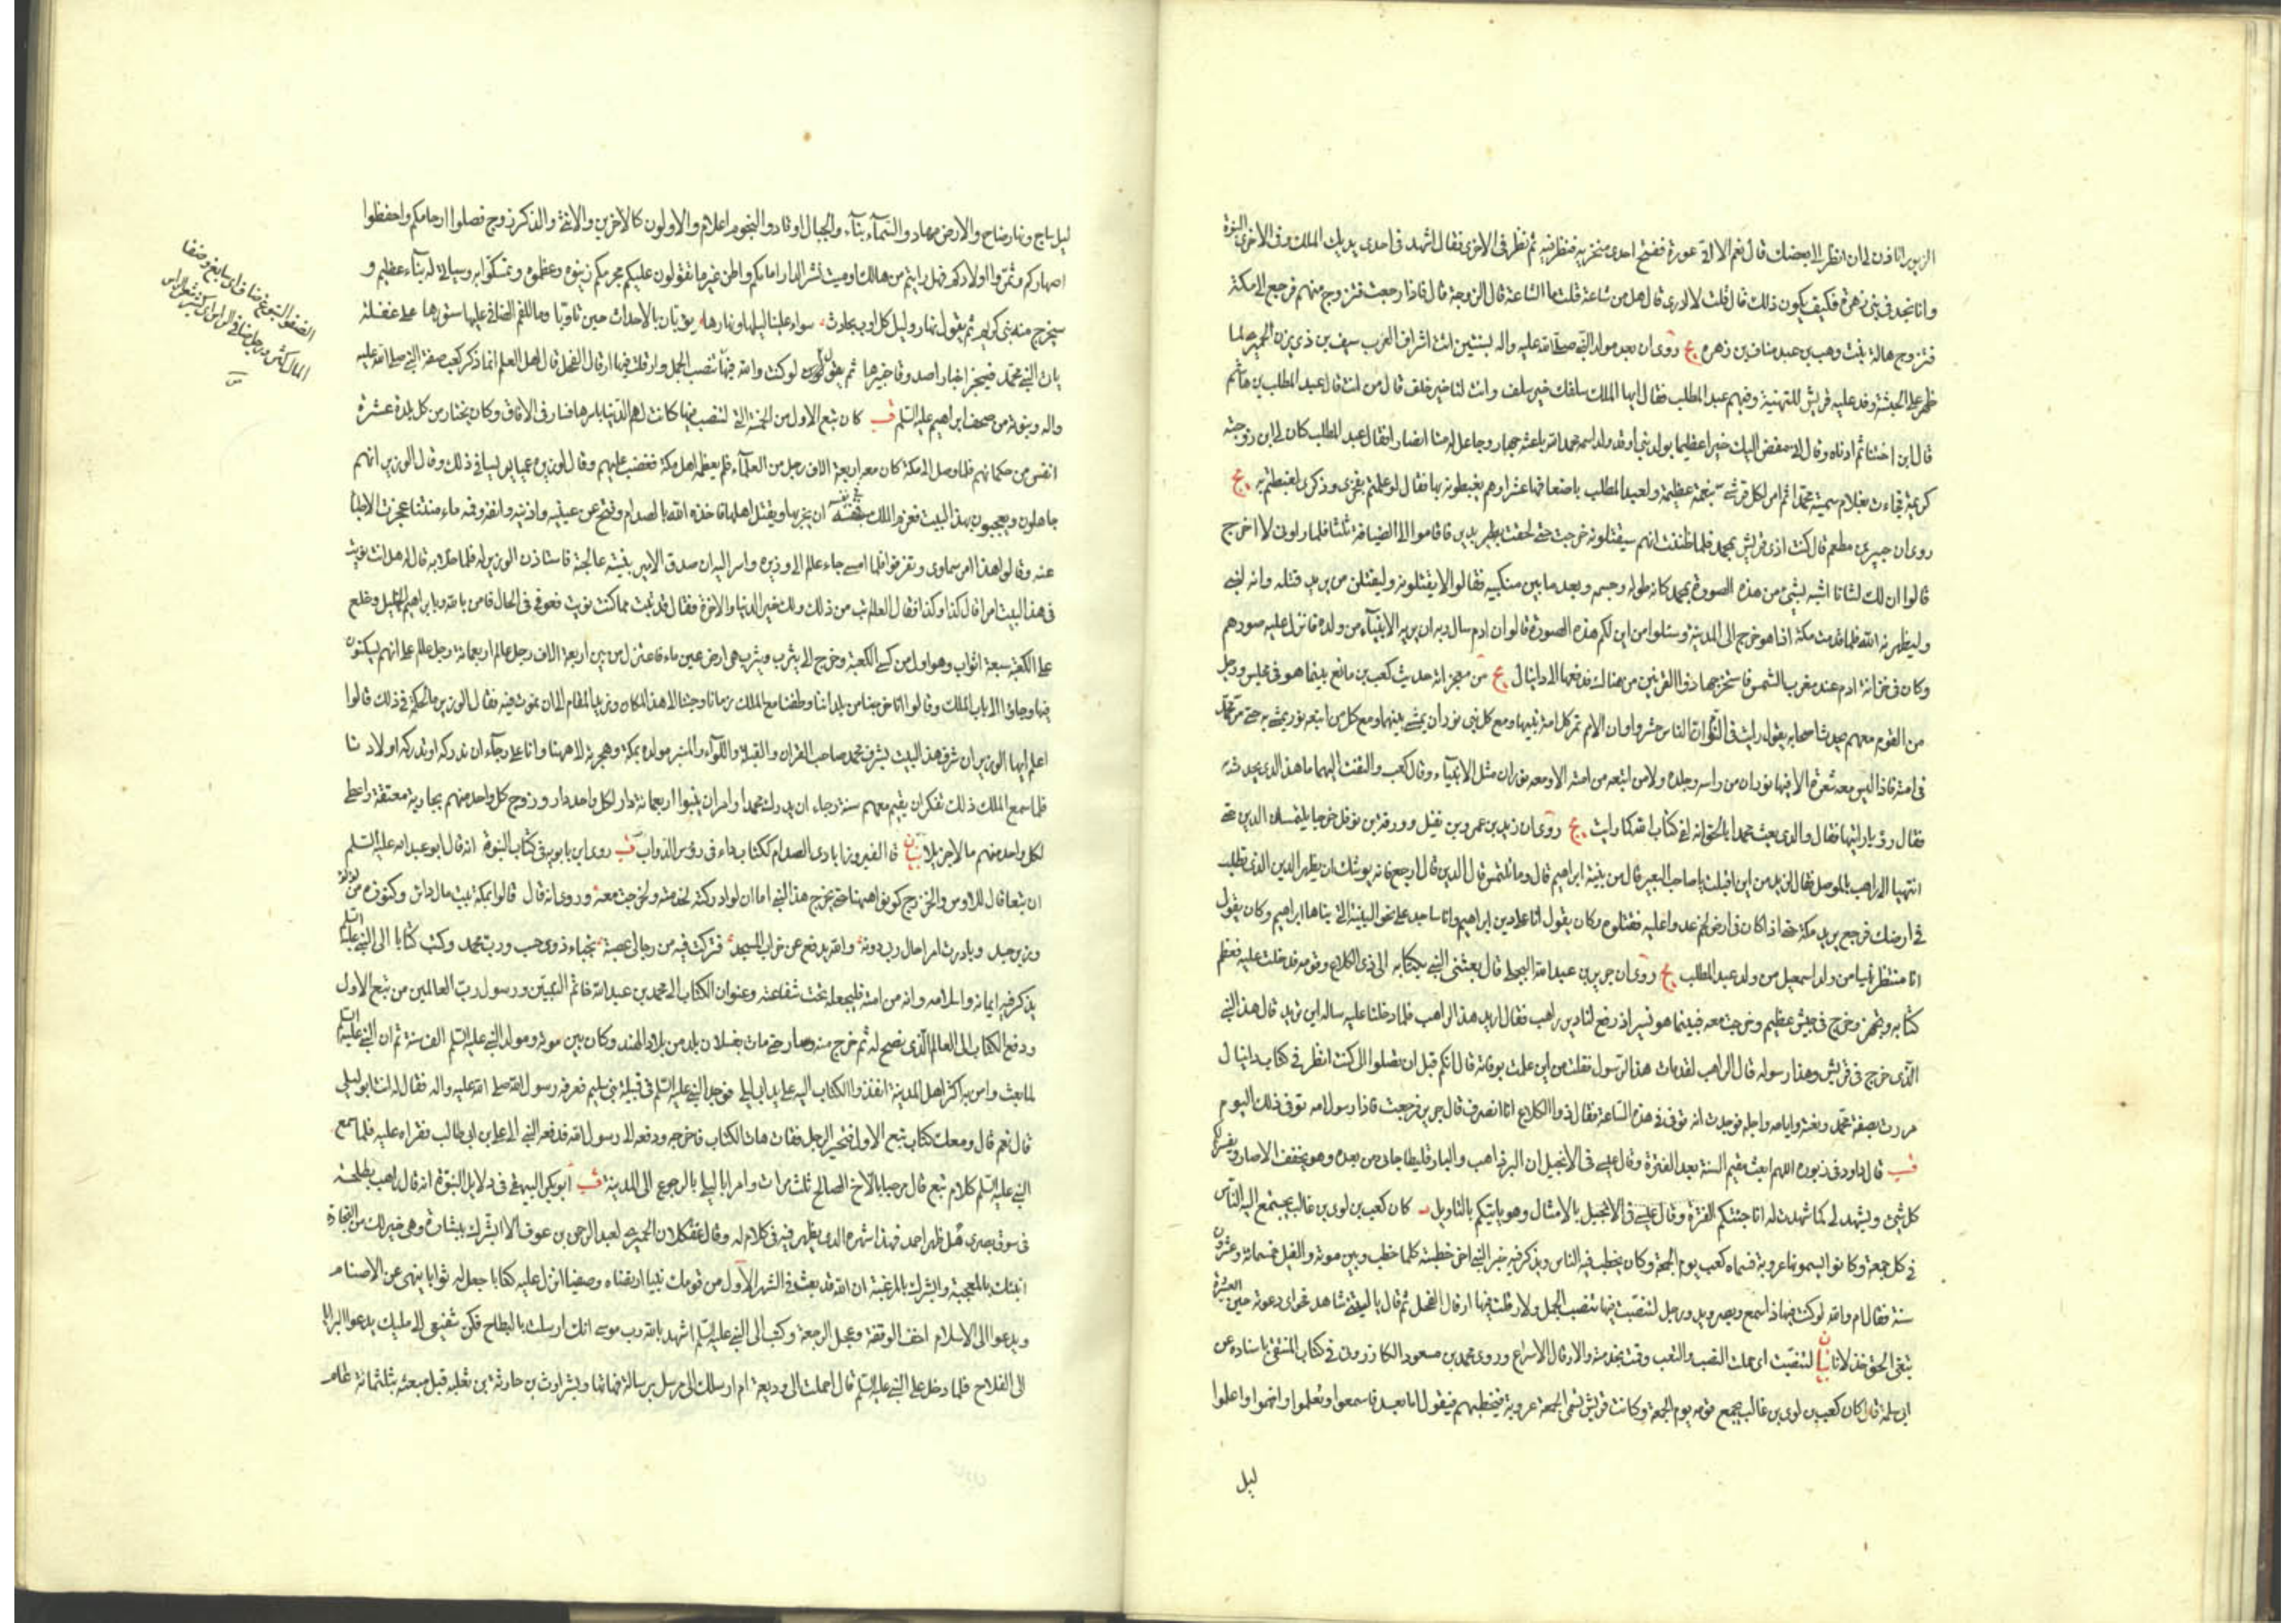 الزبور اتاذن لي ان انظر الى بعضك قال نعم الا الى عورة ففتح احدى منخريه فنظر فيه ثم نظر في الاخرى فقال اشهد في احدى يديك الملك وفي الاخرى النبوة
وانا نجد في بني زهرة فكيف يكون ذلك قال قلت لا ادري قال هل من شاعة قلت ما الشاعة قال الزوجة قال فاذا رجعت فتزوج منهم فرجع الى مكة
فتزوج هالة بنت وهب بن عبد مناف بن زهره يج روى ان بعد مولد النبي صلى الله عليه واله بسنتين اتت اشراف العرب سيف بن ذي يزن الحميري لما
ظهر على الحبشة وفد عليه قريش للتهنية وفيهم عبد المطلب فقال ايها الملك سلفك خير سلف وانت لنا خير خلف قال من انت قال عبد المطلب بن هاشم
قال ابن اختنا ثم ادناه وقال اني مفض اليك خيرا عظيما يولد نبي او قد ولد اسمه محمد الله باعثه جهارا وجاعل له منا انصارا فقال عبد المطلب كان لي ابن زوجته
كريمة فجاءت بغلام سميته محمدا ثم امر لكل قرشي بنعمة عظيمة ولعبد المطلب باضعافها عشرا وهم يغبطونه بها فقال لو علمتم بفخري وذكري لغبطتم به يج
روى ان جبير بن مطعم قال كنت اذى قريش بمحمد فلما ظننت انهم سيقتلونه خرجت حتى لحقت بدير فاقاموا لي الضيافة ثلثا فلما راوني لا اخرج
قالوا ان لك لشانا اشبه لشئ من هذه الصورة بمحمد كانه طوله وجسمه وبعد ما بين منكبيه فقالوا لا يقتلونه وليقتلن من يريد قتله وانه لنبي
وليظهرنه الله فلما قدمت مكة اذا هو خرج الى المدينة وسئلوا من اين لكم هذه الصورة قالوا ان ادم سال ربه ان يريه الانبياء من ولده فانزل عليه صورهم
وكان في خزانة ادم عند مغرب الشمس فاستخرجها ذو القرنين من هناك فدفعها الى دانيال يج من معجزاته حديث كعب بن ماتع بينما هو في مجلس ورجل
من القوم معهم يحدث اصحابه يقول رايت في النوم ان الناس حشروا وان الامم تمر كل امة بنبيها ومع كل نبي نوران يمشي بينهما ومع كل من اتبعه نور يمشي به حتى مر محمد
في امته فاذا ليس معه شعرة الا فيها نوران من راسه وجلده ولا من اتبعه من امته الا ومعه نوران مثل الانبياء وقال كعب والتفت اليهما ما هذا الذي يحدث به
فقال رؤيا رايتها فقال والذي بعث محمدا بالحق انه لفي كتاب الله كما رايت يج روى ان زيد بن عمرو بن نفيل وورقة بن نوفل خرجا يلتمسان الدين حتى
انتهيا الى راهب بالموصل فقال لزيد من اين اقبلت يا صاحب البعير قال من بنية ابراهيم قال وما تلتمس قال الدين قال ارجع فانه يوشك ان يظهر الدين الذي تطلب
في ارضك فرجع يريد مكة حتى اذا كان في ارض لخم عدوا عليه فقتلوه وكان يقول انا على دين ابراهيم وانا ساجد على نحو البنية التي بناها ابراهيم وكان يقول
انا منتظر نبيا من ولد اسمعيل من ولد عبد المطلب يج روى ان جرير بن عبد الله البجلي قال بعثني النبي بكتابه الى ذي الكلاع وقومه فدخلت عليه فعظم
كتابه وتجهز وخرج في جيش عظيم وخرجت معه فبينما هو نسير اذ رفع لنا دير راهب فقال اريد هذا الراهب فلما دخلنا عليه ساله اين تريد قال هذا النبي
الذي خرج في قريش وهذا رسوله قال الراهب لقد مات هذا الرسول فقلت من اين علمت بوفاته قال انكم قبل ان تصلوا الي كنت انظر في كتاب دانيال
مررت بصفة محمد ونعته وايامه واجله فوجدت انه توفي في هذه الساعة فقال ذو الكلاع انا انصرف قال جرير فرجعت فاذا رسول الله توفي ذلك اليوم
قب قال داود في زبوره اللهم ابعث مقيم السنة بعد الفترة وقال عيسى في الانجيل ان البر ذاهب والبارقليطا جائي من بعده وهو يخفف الاصار ويفسر لكم
كل شئ ويشهد لي كما شهدت له انا جئتكم الفترة وقال عيسى في الانجيل بالامثال وهو ياتيكم بالتاويل كان كعب بن لوي بن غالب يجتمع اليه الناس
في كل جمعة وكانوا يسمونها عروبة فسماه كعب يوم الجمعة وكان يخطب فيه الناس ويذكر فيه خبر النبي اخر خطبته كلما خطب وبين موته والفيل خمسمائة وعشرون
سنة فقال ام والله لو كنت فيها ذا سمع وبصر ويد ورجل لتنصبت فيها تنصب الجمل ولارقلت فيها ارقال الفحل ثم قال يا ليتني شاهد فحواي دعوته حين العشيرة
تبغي الحق خذلانا بيان لتنصبت اي حملت النصب والتعب وقت بخدمته والارقال الاسراع وروى محمد بن مسعود الكازروني في كتاب المنتقى باسناده عن
ابي سلمة قال كان كعب بن لوي بن غالب يجمع قومه يوم الجمعة وكانت قريش تسمى الجمعة عروبة فيخطبهم فيقول اما بعد فاسمعوا وتعلموا وافهموا واعلموا
ليل
ليل ساج ونهار ضاح والارض مهاد والسماء بناء والجبال اوتاد والنجوم اعلام والاولون كالاخرين والانثى والذكر زوج فصلوا ارحامكم واحفظوا
اصهاركم وثمروا اولادكم فهل رايتم من هالك او ميت نشر الدار امامكم واظن غير ما تقولون عليكم بحرمكم زينوه وعظموه وتمسكوا به وسياتي له بناء عظيم و
سيخرج منه نبي كريم ثم يقول نهار وليل كل اوب بحادث سواء علينا ليلها ونهارها يؤبان بالاحداث حين تاوبا وبالنعم الضافي علينا ستورها على غفلة
يات النبي محمد فيخبر اخبارا صدوقا خبيرها ثم يقول لو كنت والله فيها تنصب الجمل وارقلت فيها ارقال الفحل قال اهل العلم انما ذكر كعب صفة النبي صلى الله عليه
واله ونبوته من صحف ابراهيم عليه السلم قب كان تبع الاول من الخمسة التي كانت لهم الدنيا باسرها فسار في الافاق وكان يختار من كل بلدة عشرة
انفس من حكمائهم فلما وصل الى مكة كان معه اربعة الاف رجل من العلماء فلم يعظمه اهل مكة فغضب عليهم وقال لوزيره عميا يس لسيا في ذلك وقال الوزير انهم
جاهلون ويعجبون بهذا البيت فعزم الملك في نفسه ان يخربها ويقتل اهلها فاخذه الله بالصدام وفتح عن عينيه واذنيه وانفه وفمه ماء منتنا عجزت الاطبا
عنه وقالوا هذا امر سماوي وتفرقوا فلما امسى جاء عالم الى وزيره واسر اليه ان صدق الامير بنيته عالجته فاستاذن الوزير له فلما خلا به قال له هل انت نويت
في هذا البيت امرا قال كذا وكذا فقال العالم تب من ذلك ولك خير الدنيا والاخرة فقال قد تبت مما كنت نويت فعوفي في الحال فامن بالله وبابراهيم الخليل وخلع
على الكعبة سبعة اثواب وهو اول من كسى الكعبة وخرج الى يثرب ويثرب هي ارض عين ماء فاعتزل من بين اربعة الاف رجل عالم اربعمائة رجل عالم على انهم يسكنون
فيها وجاؤا الى باب الملك وقالوا انا خرجنا من بلداننا وطفنا مع الملك زمانا وجئنا الى هذا المكان ونريد المقام الى ان نموت فيه فقال الوزير ما الحكمة في ذلك قالوا
اعلم ايها الوزير ان شرف هذا البيت بشرف محمد صاحب القران والقبلة واللواء والمنبر مولده بمكة وهجرته الى ههنا وانا على رجاء ان ندركه او تدركه اولادنا
فلما سمع الملك ذلك تفكر ان يقيم معهم سنة رجاء ان يدرك محمدا وامر ان يبنوا اربعمائة دار لكل واحد دار وزوج كل واحد منهم بجارية معتقة واعطى
لكل واحد منهم مالا جزيلا بيان قال الفيروزابادي الصدام ككتاب داء في رؤس الدواب قب روى ابن بابويه في كتاب النبوة انه قال ابو عبد الله عليه السلم
ان تبعا قال للاوس والخزرج كونوا ههنا حتى يخرج هذا النبي اما ان لو ادركته لخدمته ولخرجت معه وروى انه قال قالوا بمكة بيت مال داثر وكنوزه من لؤلؤ
وزبرجد وبادرت امرا حال ربي دونه والله يدفع عن خراب المسجد فتركت فيه من رجالي عصبة نجباء ذوي حسب ورب محمد وكتب كتابا الى النبي عليه السلم
يذكر فيه ايمانه واسلامه وانه من امته فليجعله تحت شفاعته وعنوان الكتاب الى محمد بن عبد الله خاتم النبيين ورسول رب العالمين من تبع الاول
ودفع الكتاب الى العالم الذي نصح له ثم خرج منه وسار حتى مات بغسلان بلد من بلاد الهند وكان بين موته ومولد النبي عليه السلم الف سنة ثم ان النبي عليه السلم
لما بعث وامن به اكثر اهل المدينة انفذوا الكتاب اليه على يد ابي ليلى فوجد النبي عليه السلم في قبيلة بني سليم فعرفه رسول الله صلى الله عليه واله فقال له انت ابو ليلى
قال نعم قال ومعك كتاب تبع الاول فتحير الرجل فقال هات الكتاب فاخرجه ودفعه الى رسول الله فدفعه النبي الى علي بن ابي طالب فقراه عليه فلما سمع
النبي عليه السلم كلام تبع قال مرحبا بالاخ الصالح ثلث مرات وامر ابا ليلى بالرجوع الى المدينة قب ابو بكر البيهقي في دلايل النبوة انه قال راهب لطلحة
في سوق بصرى هل ظهر احمد فهذا شهره الذي يظهر فيه في كلام له وقال عفكلان الحميري لعبد الرحمن بن عوف الا ابشرك ببشارة وهي خير لك من التجارة
انبئك بالمعجبة وابشرك بالمرغبة ان الله قد بعث في الشهر الاول من قومك نبيا ارتضاه وصفيا انزل عليه كتابا جعل له ثوابا ينهى عن الاصنام
ويدعوا الى الاسلام اخف الوقفة وعجل الرجعة وكتب الى النبي عليه السلم اشهد بالله رب موسى انك ارسلت بالبطاح فكن شفيعي الى مليك يدعوا البرايا
الى الفلاح فلما دخل على النبي عليه السلم قال احملت الي وديعة ام ارسلك الي مرسل برسالة فهاتها وبشر اوس بن حارثة بن ثعلبة قبل مبعثه بثلثمائة عام